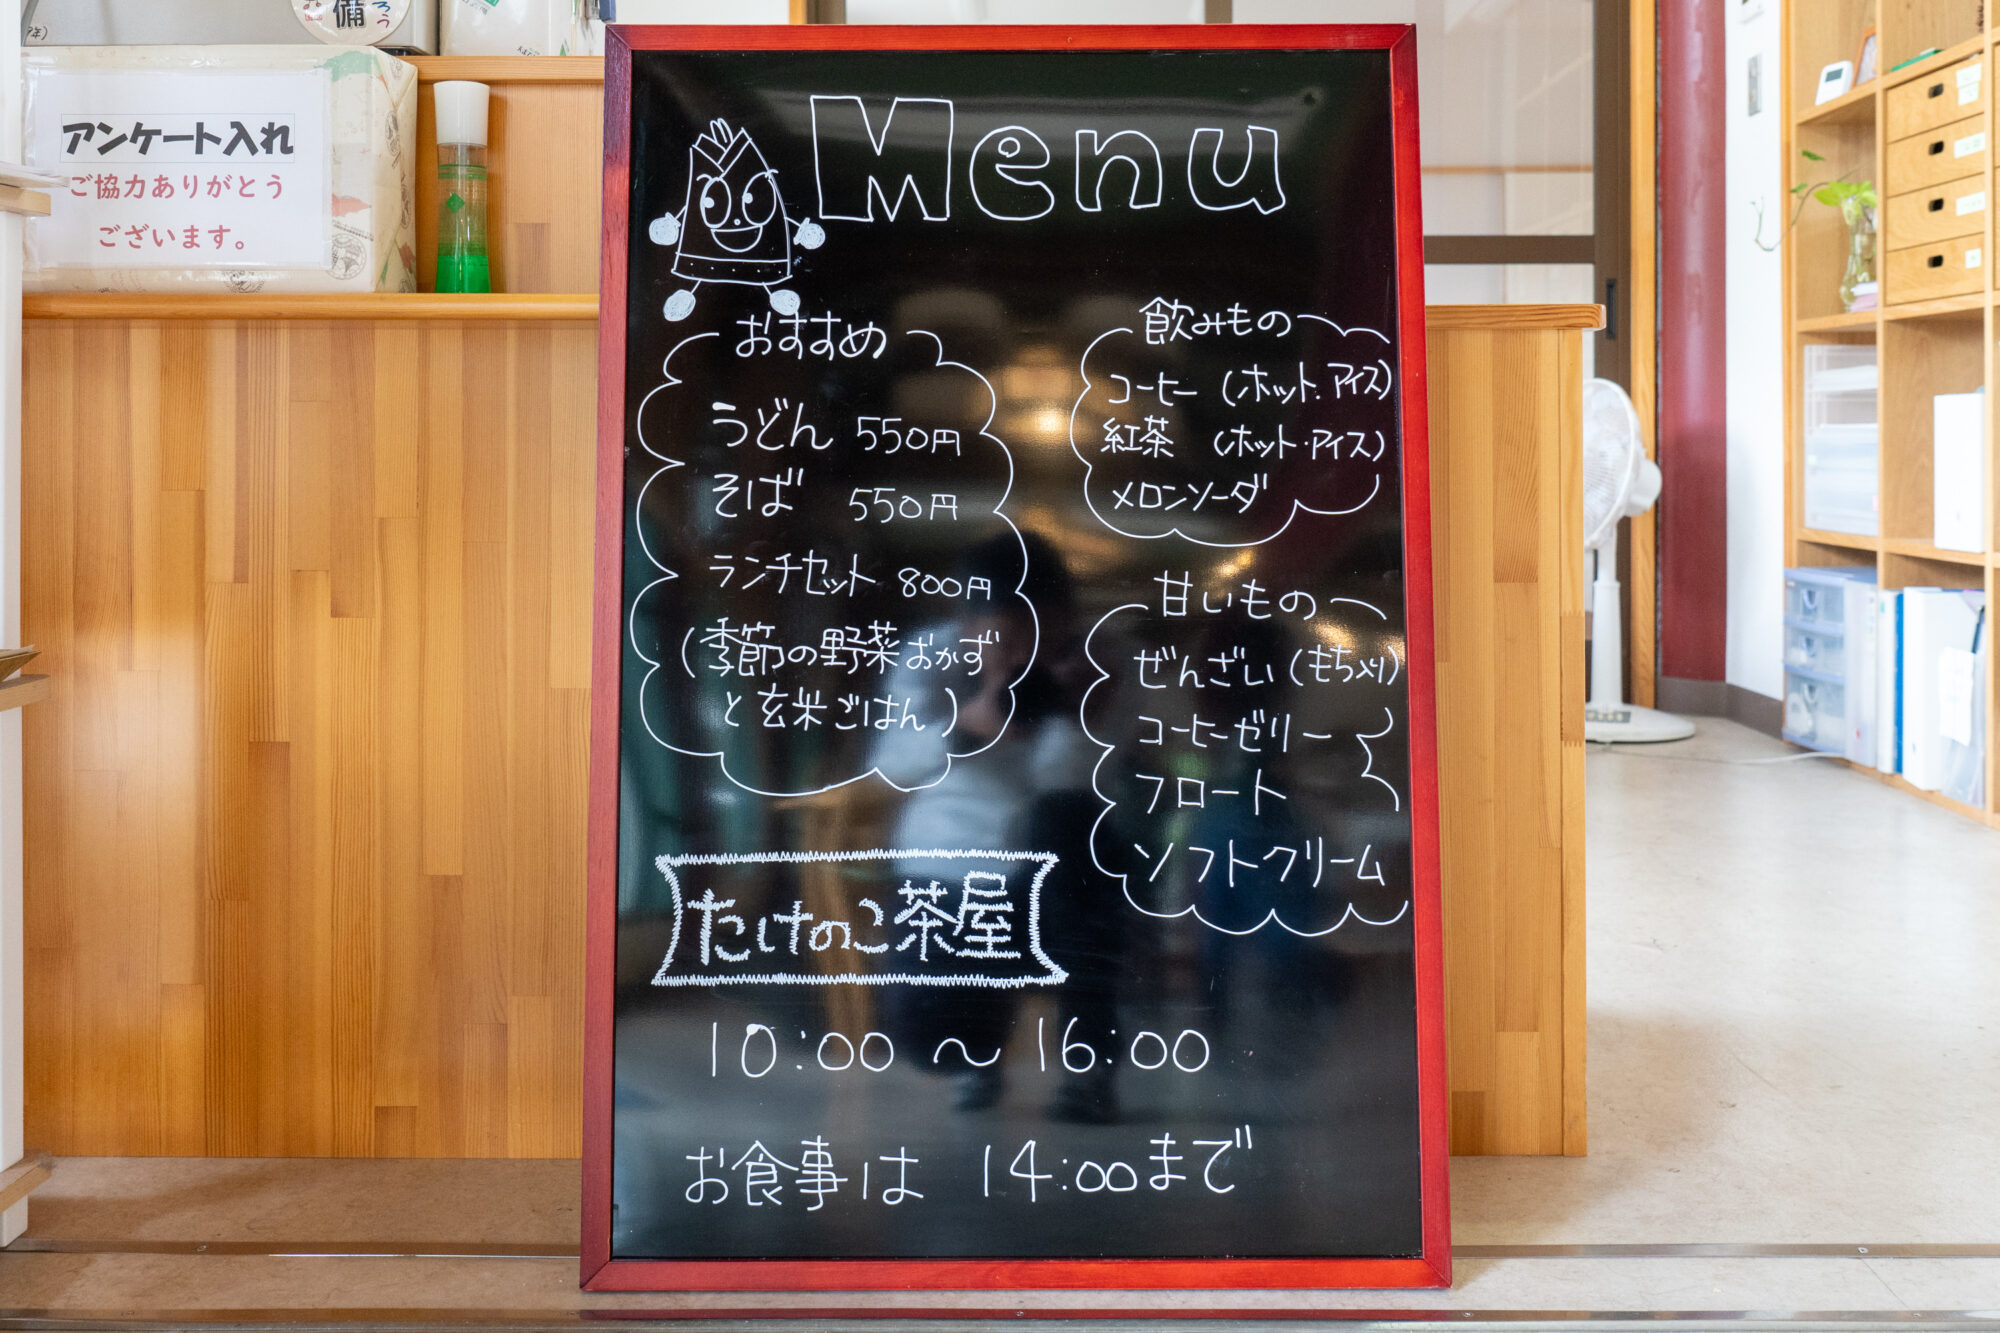 年)
備
ろう
アンケート入れ
ご協力ありがとう
ございます。
Menu
おすすめ
うどん 550円
そば 550円
ランチセット 800円
(季節の野菜おかず
と玄米ごはん)
飲みもの
コーヒー (ホット.アイス)
紅茶 (ホット・アイス)
メロンソーダ
甘いもの
ぜんざい(もち入り)
コーヒーゼリー
フロート
ソフトクリーム
たけのこ茶屋
10:00 ~ 16:00
お食事は 14:00まで